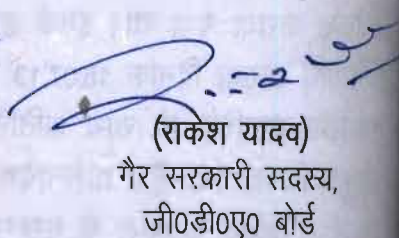 (राकेश यादव)
गैर सरकारी सदस्य,
जी0डी0ए0 बोर्ड